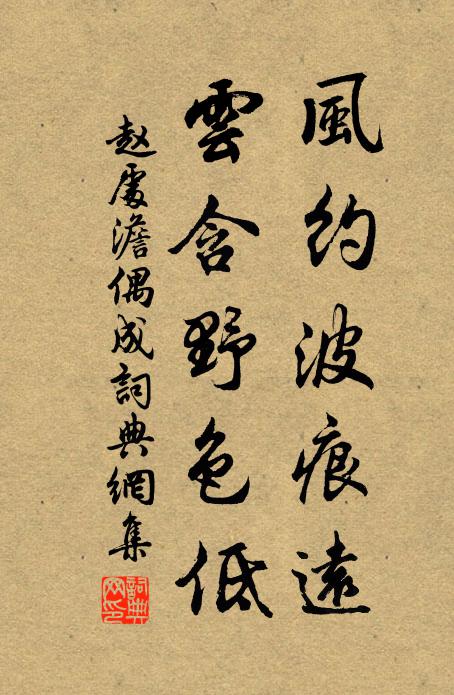 風約波痕遠
雲含野色低
赵處澹偶成詞典網集
詞典網印